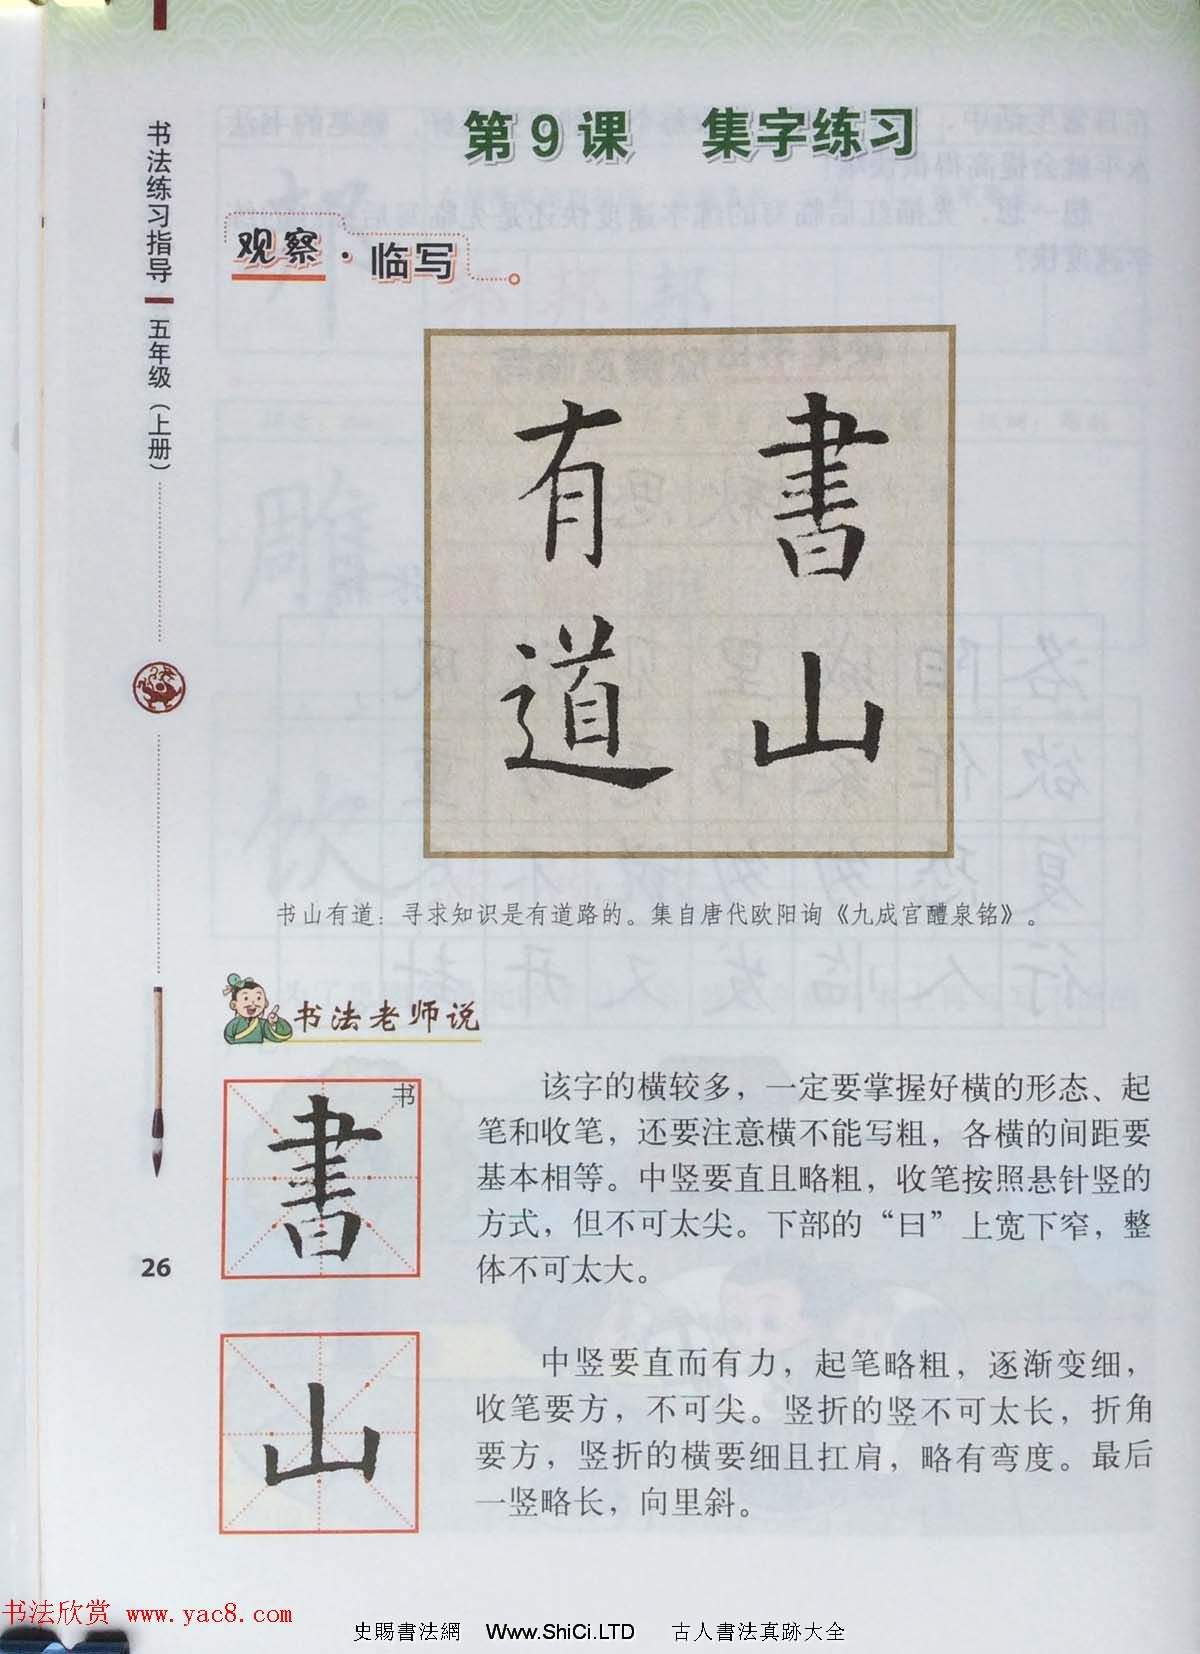 书法练习指导
五年级（上册）
26
第9课 集字练习
观察·临写
書山
有道
书山有道：寻求知识是有道路的。集自唐代欧阳询《九成宫醴泉铭》。
书法老师说
書
书
该字的横较多，一定要掌握好横的形态、起
笔和收笔，还要注意横不能写粗，各横的间距要
基本相等。中竖要直且略粗，收笔按照悬针竖的
方式，但不可太尖。下部的“曰”上宽下窄，整
体不可太大。
山
中竖要直而有力，起笔略粗，逐渐变细，
收笔要方，不可尖。竖折的竖不可太长，折角
要方，竖折的横要细且扛肩，略有弯度。最后
一竖略长，向里斜。
书法欣赏 www.yac8.com
史賜書法網 Www.ShiCi.LTD 古人書法真跡大全